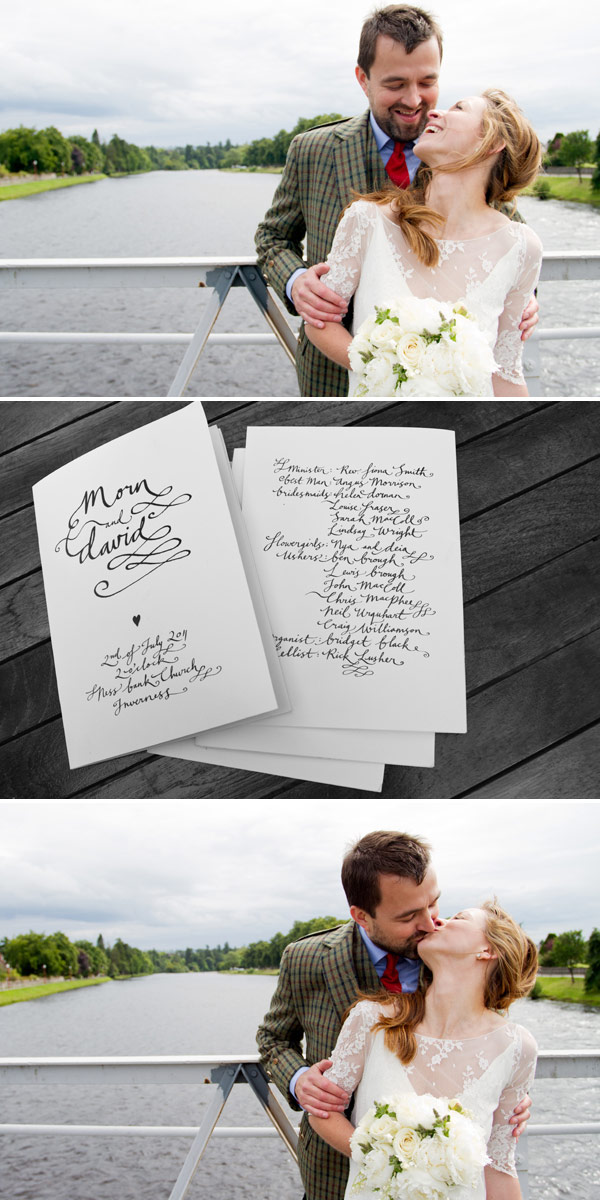 Morn
and
david
2nd of July 2011
2 o'clock
Ness bank Church
Inverness
Minister: Rev fiona Smith
best Man: Angus Morrison
bridesmaids: helen dornan
Louise fraser
Sarah MacColl
Lindsay Wright
flowergirls: Nya and deia
Ushers: ben brough
Lewis brough
John MacColl
Chris MacPhee
Neil Urquhart
Craig Williamson
organist: bridget black
cellist: Rick Lusher